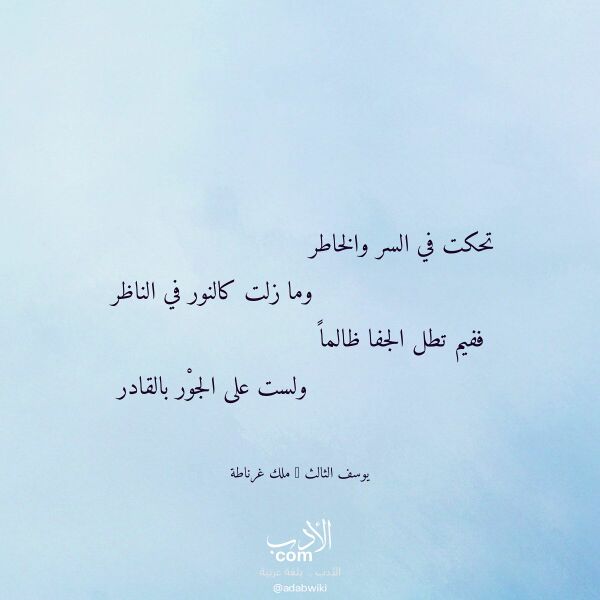 تحكت في السر والخاطر
وما زلت كالنور في الناظر
ففيم تطل الجفا ظالماً
ولست على الجوْر بالقادر
يوسف الثالث ▯ ملك غرناطة
الأدب
com
الأدب .. بلغة عربية
@adabwiki